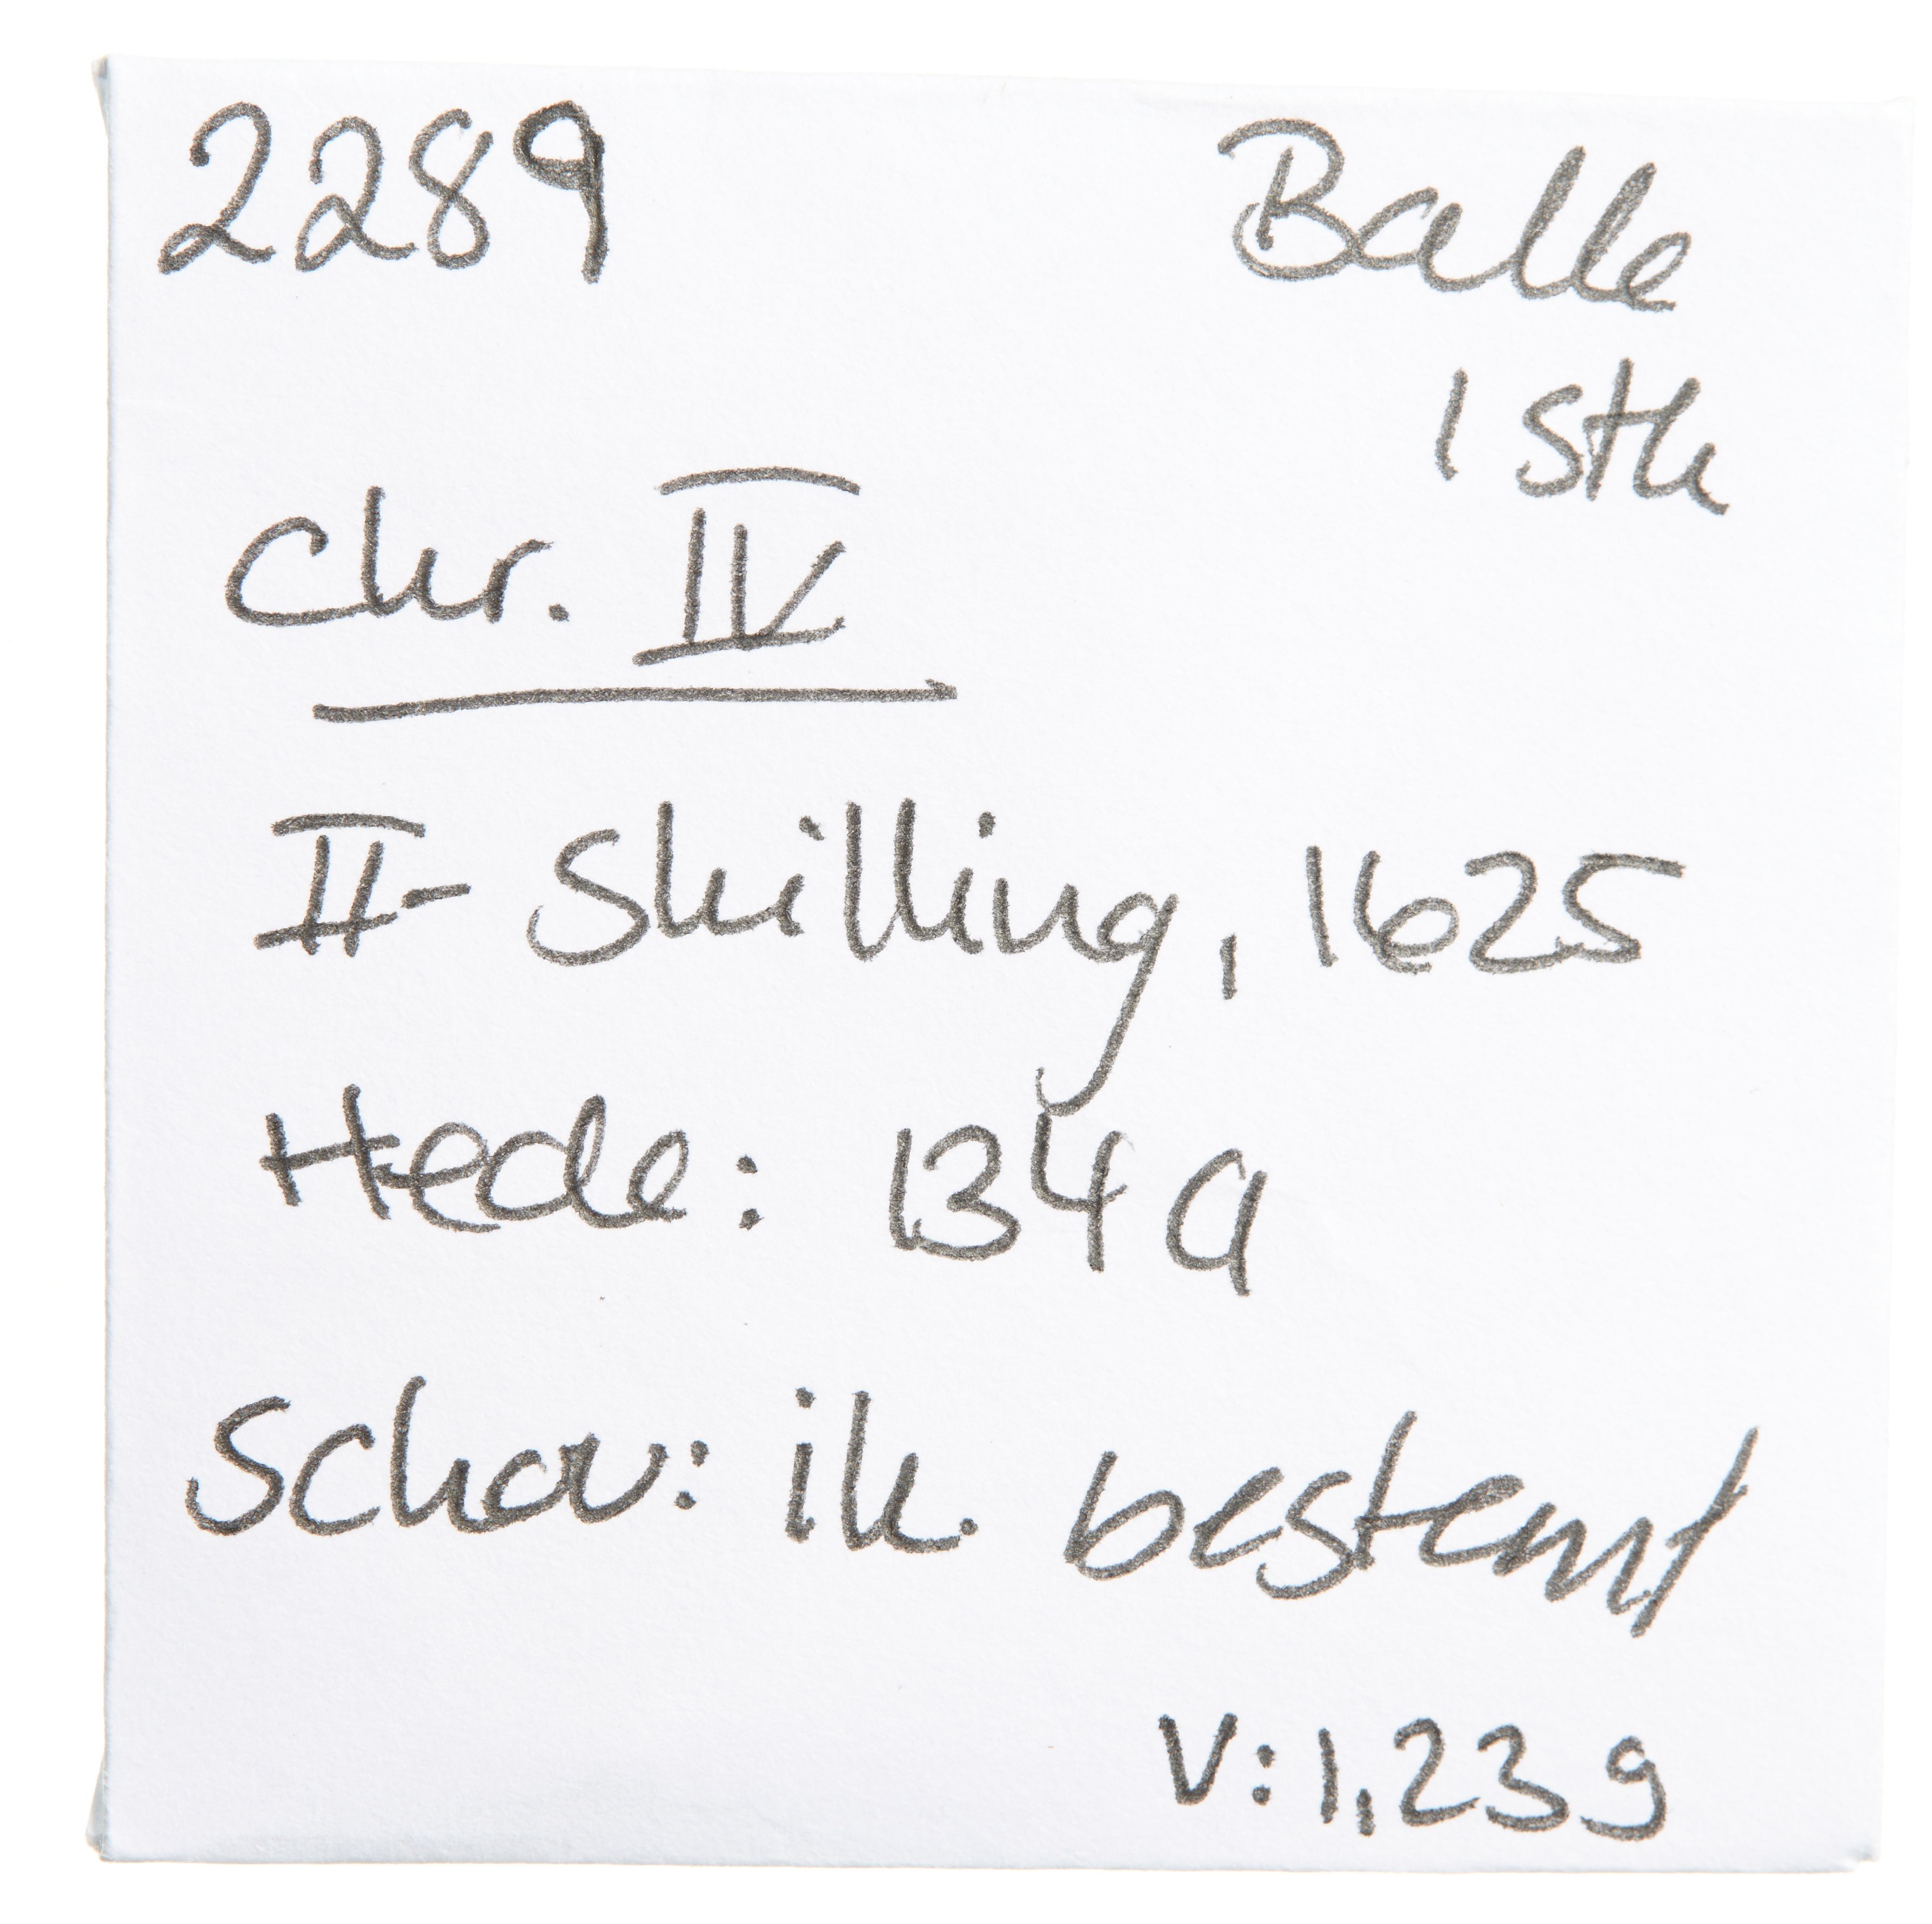 2289 Balle
1 stk
Chr. IV
II- Skilling, 1625
Hede: 134 a
Schou: ik. bestemt
V: 1,23 g